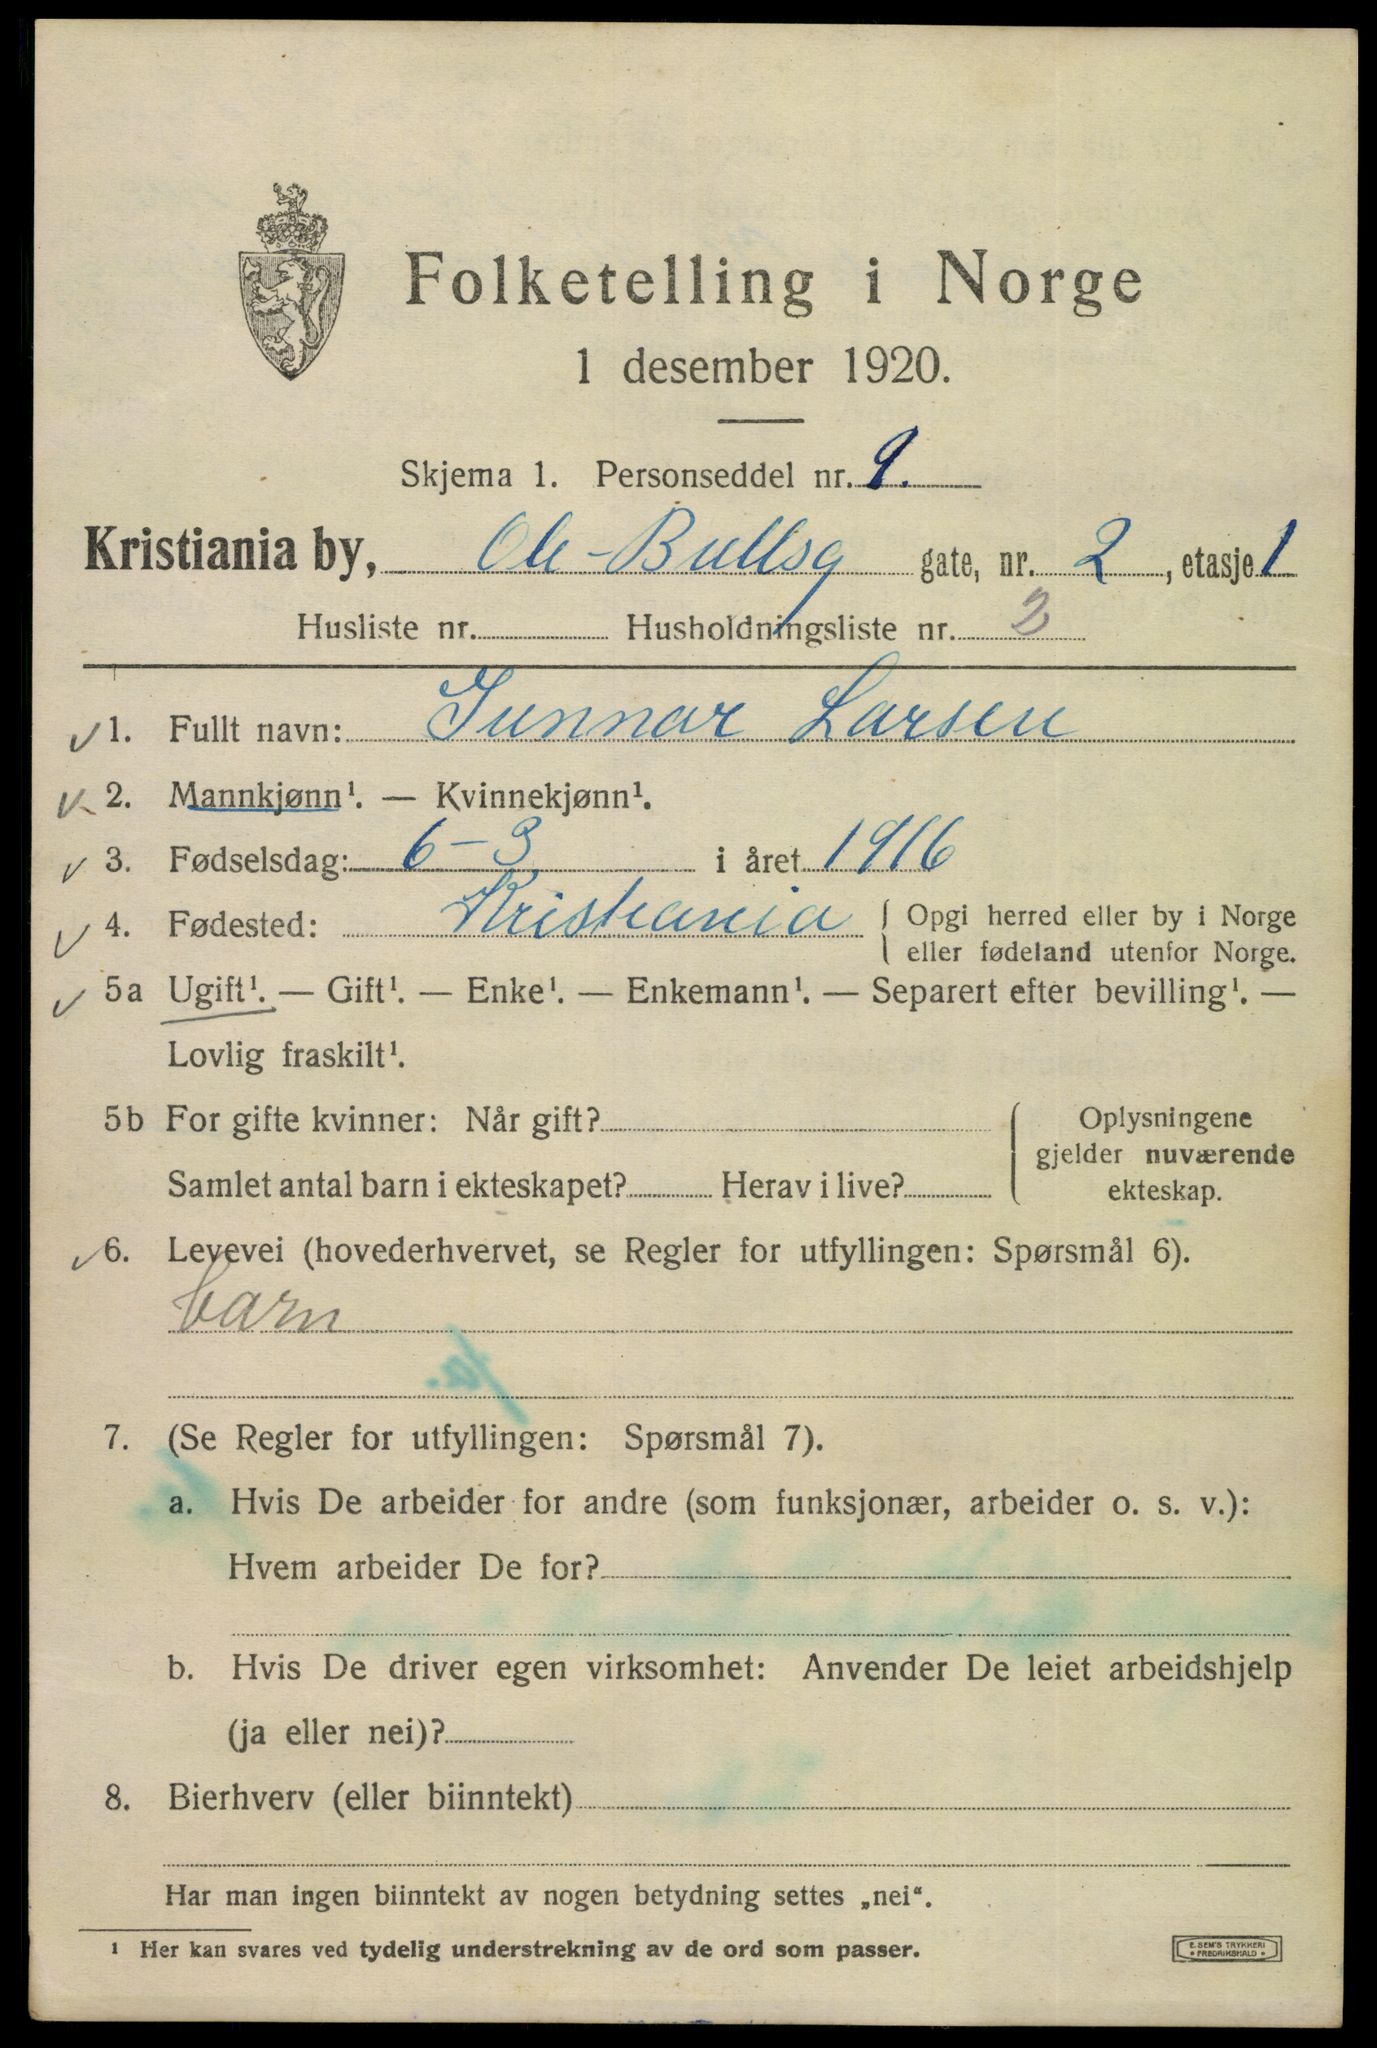 Folketelling i Norge
1 desember 1920.
Skjema 1. Personseddel nr. 9.
Kristiania by, Ole-Bullsg gate, nr. 2, etasje 1
Husliste nr. Husholdningsliste nr. 2
1. Fullt navn: Gunnar Larsen
2. Mannkjønn¹. — Kvinnekjønn¹.
3. Fødselsdag: 6-3 i året 1916
4. Fødested: Kristiania { Opgi herred eller by i Norge
eller fødeland utenfor Norge.
5a Ugift¹. — Gift¹. — Enke¹. — Enkemann¹. — Separert efter bevilling¹. —
Lovlig fraskilt¹.
5b For gifte kvinner: Når gift? { Oplysningene
gjelder nuværende
Samlet antal barn i ekteskapet? Herav i live? ekteskap.
6. Levevei (hovederhvervet, se Regler for utfyllingen: Spørsmål 6).
barn
7. (Se Regler for utfyllingen: Spørsmål 7).
a. Hvis De arbeider for andre (som funksjonær, arbeider o. s. v.):
Hvem arbeider De for?
b. Hvis De driver egen virksomhet: Anvender De leiet arbeidshjelp
(ja eller nei)?
8. Bierhverv (eller biinntekt)
Har man ingen biinntekt av nogen betydning settes „nei“.
¹ Her kan svares ved tydelig understrekning av de ord som passer.
E. SEM'S TRYKKERI
• FREDRIKSHALD •